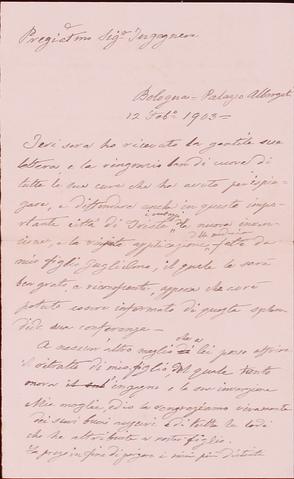 Pregiatmo Sigr Ingegnere
Bologna = Palazzo Albergati
12 Febo 1903 =
Ieri sera ho ricevuto la gentile sua
lettera, e la ringrazio tanto di cuore di
tutte le sue cure che ha avuto per
e diffondere anche in questa impor
tante città di Trieste la nuova inven
zione, e la applicazione fatta da
mio figlio Guglielmo, il quale le sarà
ben grato, e riconoscente, appena che avrà
potuto essere informato di questa splen
dida sua conferenza =
A nessun altro meglio che a lei posso offrire
il ritratto di mio figlio del quale tanto
onora ingegno e la sua invenzione
Mia moglie, ed io la ringraziamo vivamente
dei suoi buoni auguri e di tutte le lodi
che ha attribuite a nostro figlio.
La prego in fine di porgere i miei più distinti